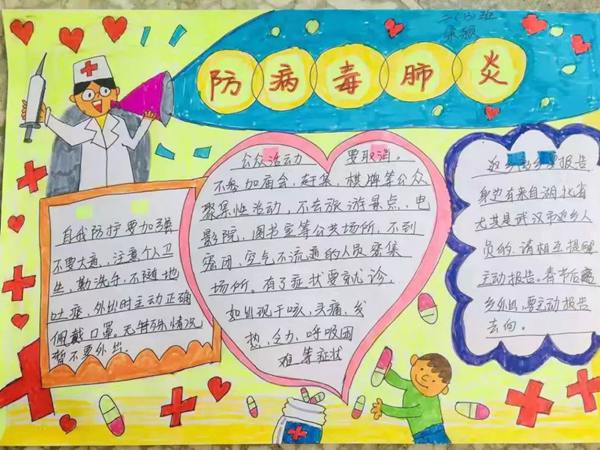 二(3)班
防病毒肺炎
自我防护要加强
不要大意，注意个人卫
生，勤洗手，不随地
吐痰，外出时主动正确
佩戴口罩，无特殊情况
暂不要外出。
公众活动 要取消。
不参加庙会，赶集，棋牌等公众
聚集性活动，不去旅游景点，电
影院，图书室等公共场所，不到
密闭，空气不流通的人员密集
场所，有了症状要就诊，
如出现干咳，头痛，发
热，乏力，呼吸困
难等症状
返乡出乡要报告
身边有来自湖北省
尤其是武汉市返乡人
员的，请相互提醒
主动报告。春节后离
乡外出，要主动报告
去向。